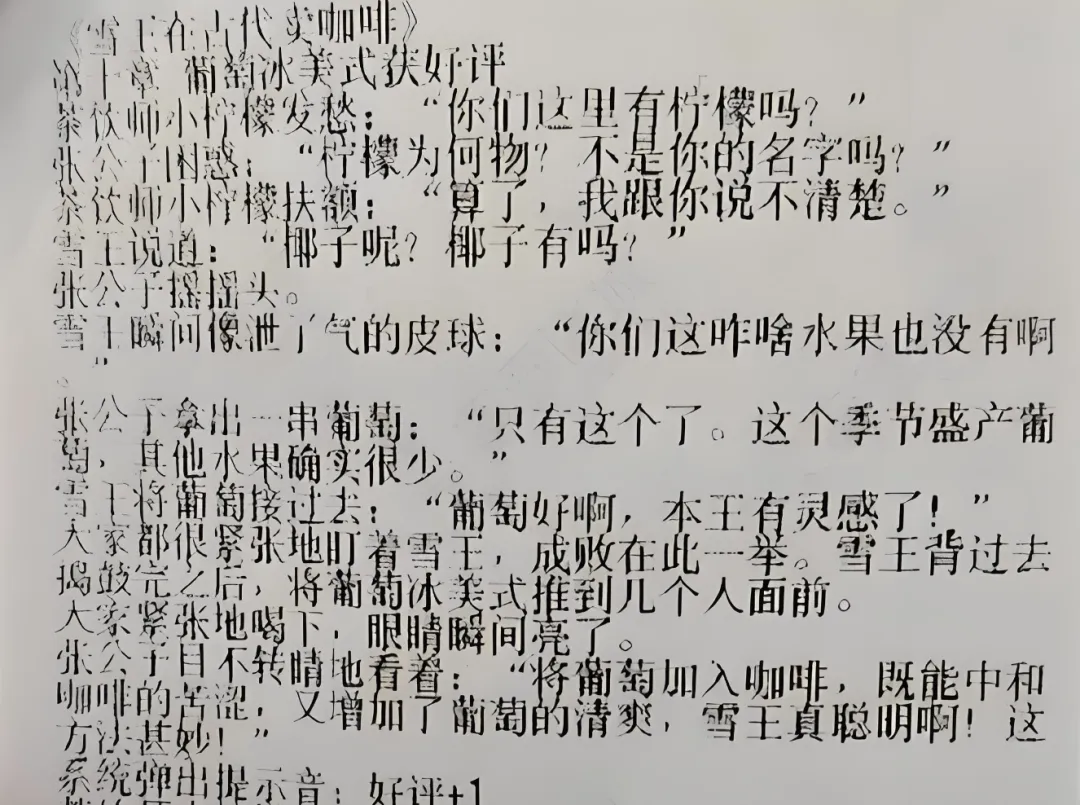 《雪王在古代卖咖啡》
第十章 葡萄冰美式获好评
茶饮师小柠檬发愁：“你们这里有柠檬吗？”
张公子困惑：“柠檬为何物？不是你的名字吗？”
茶饮师小柠檬扶额：“算了，我跟你说不清楚。”
雪王说道：“椰子呢？椰子有吗？”
张公子摇摇头。
雪王瞬间像泄了气的皮球：“你们这咋啥水果也没有啊
。”
张公子拿出一串葡萄：“只有这个了。这个季节盛产葡
萄，其他水果确实很少。”
雪王将葡萄接过去：“葡萄好啊，本王有灵感了！”
大家都很紧张地盯着雪王，成败在此一举。雪王背过去
捣鼓完之后，将葡萄冰美式推到几个人面前。
大家紧张地喝下，眼睛瞬间亮了。
张公子目不转睛地看着：“将葡萄加入咖啡，既能中和
咖啡的苦涩，又增加了葡萄的清爽，雪王真聪明啊！这
方法甚妙！”
系统弹出提示音：好评+1